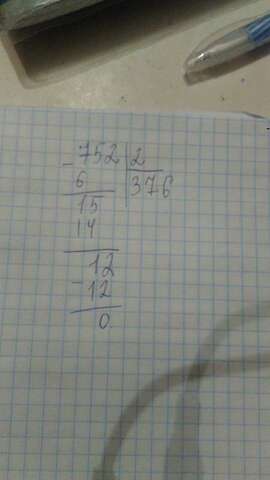 - 752 2
6 376
15
14
12
- 12
0